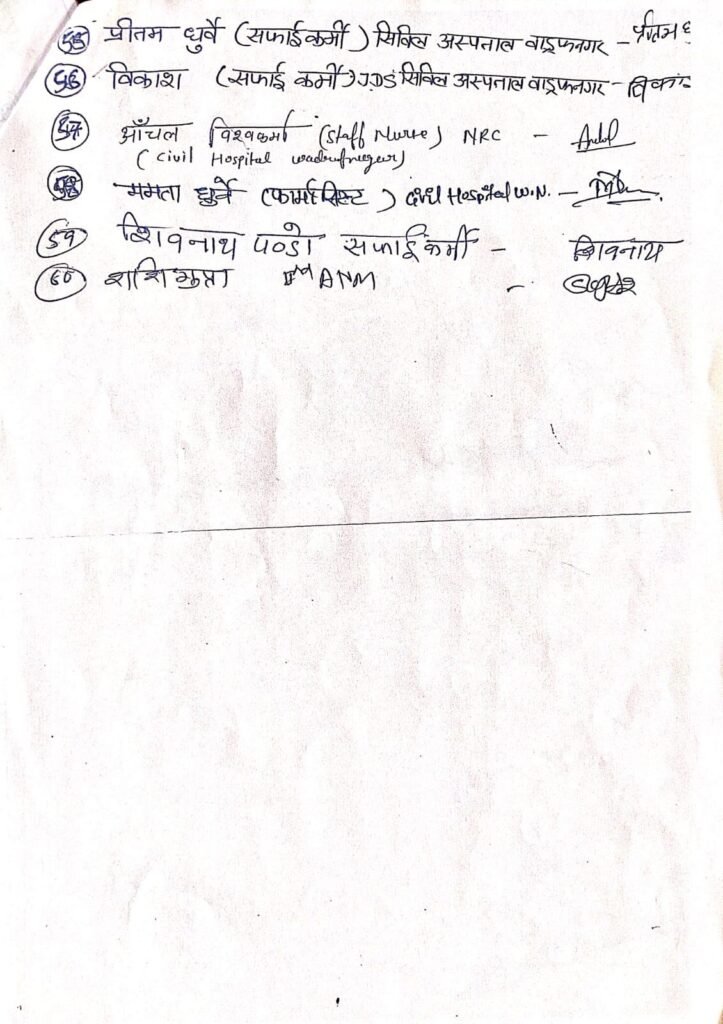 55 प्रीतम धुर्वे (सफाईकर्मी) सिविल अस्पताल वाड्रफनगर - प्रीतम
56 विकाश (सफाई कर्मी) JDS सिविल अस्पताल वाड्रफनगर - विकाश
57 आँचल विश्वकर्मा (Staff Nurse) NRC -
(Civil Hospital wadrafnagar)
58 ममता धुर्वे (फार्मासिस्ट) Civil Hospital W.N. -
59 शिवनाथ पण्डो सफाईकर्मी - शिवनाथ
60 शशि गुप्ता ANM -